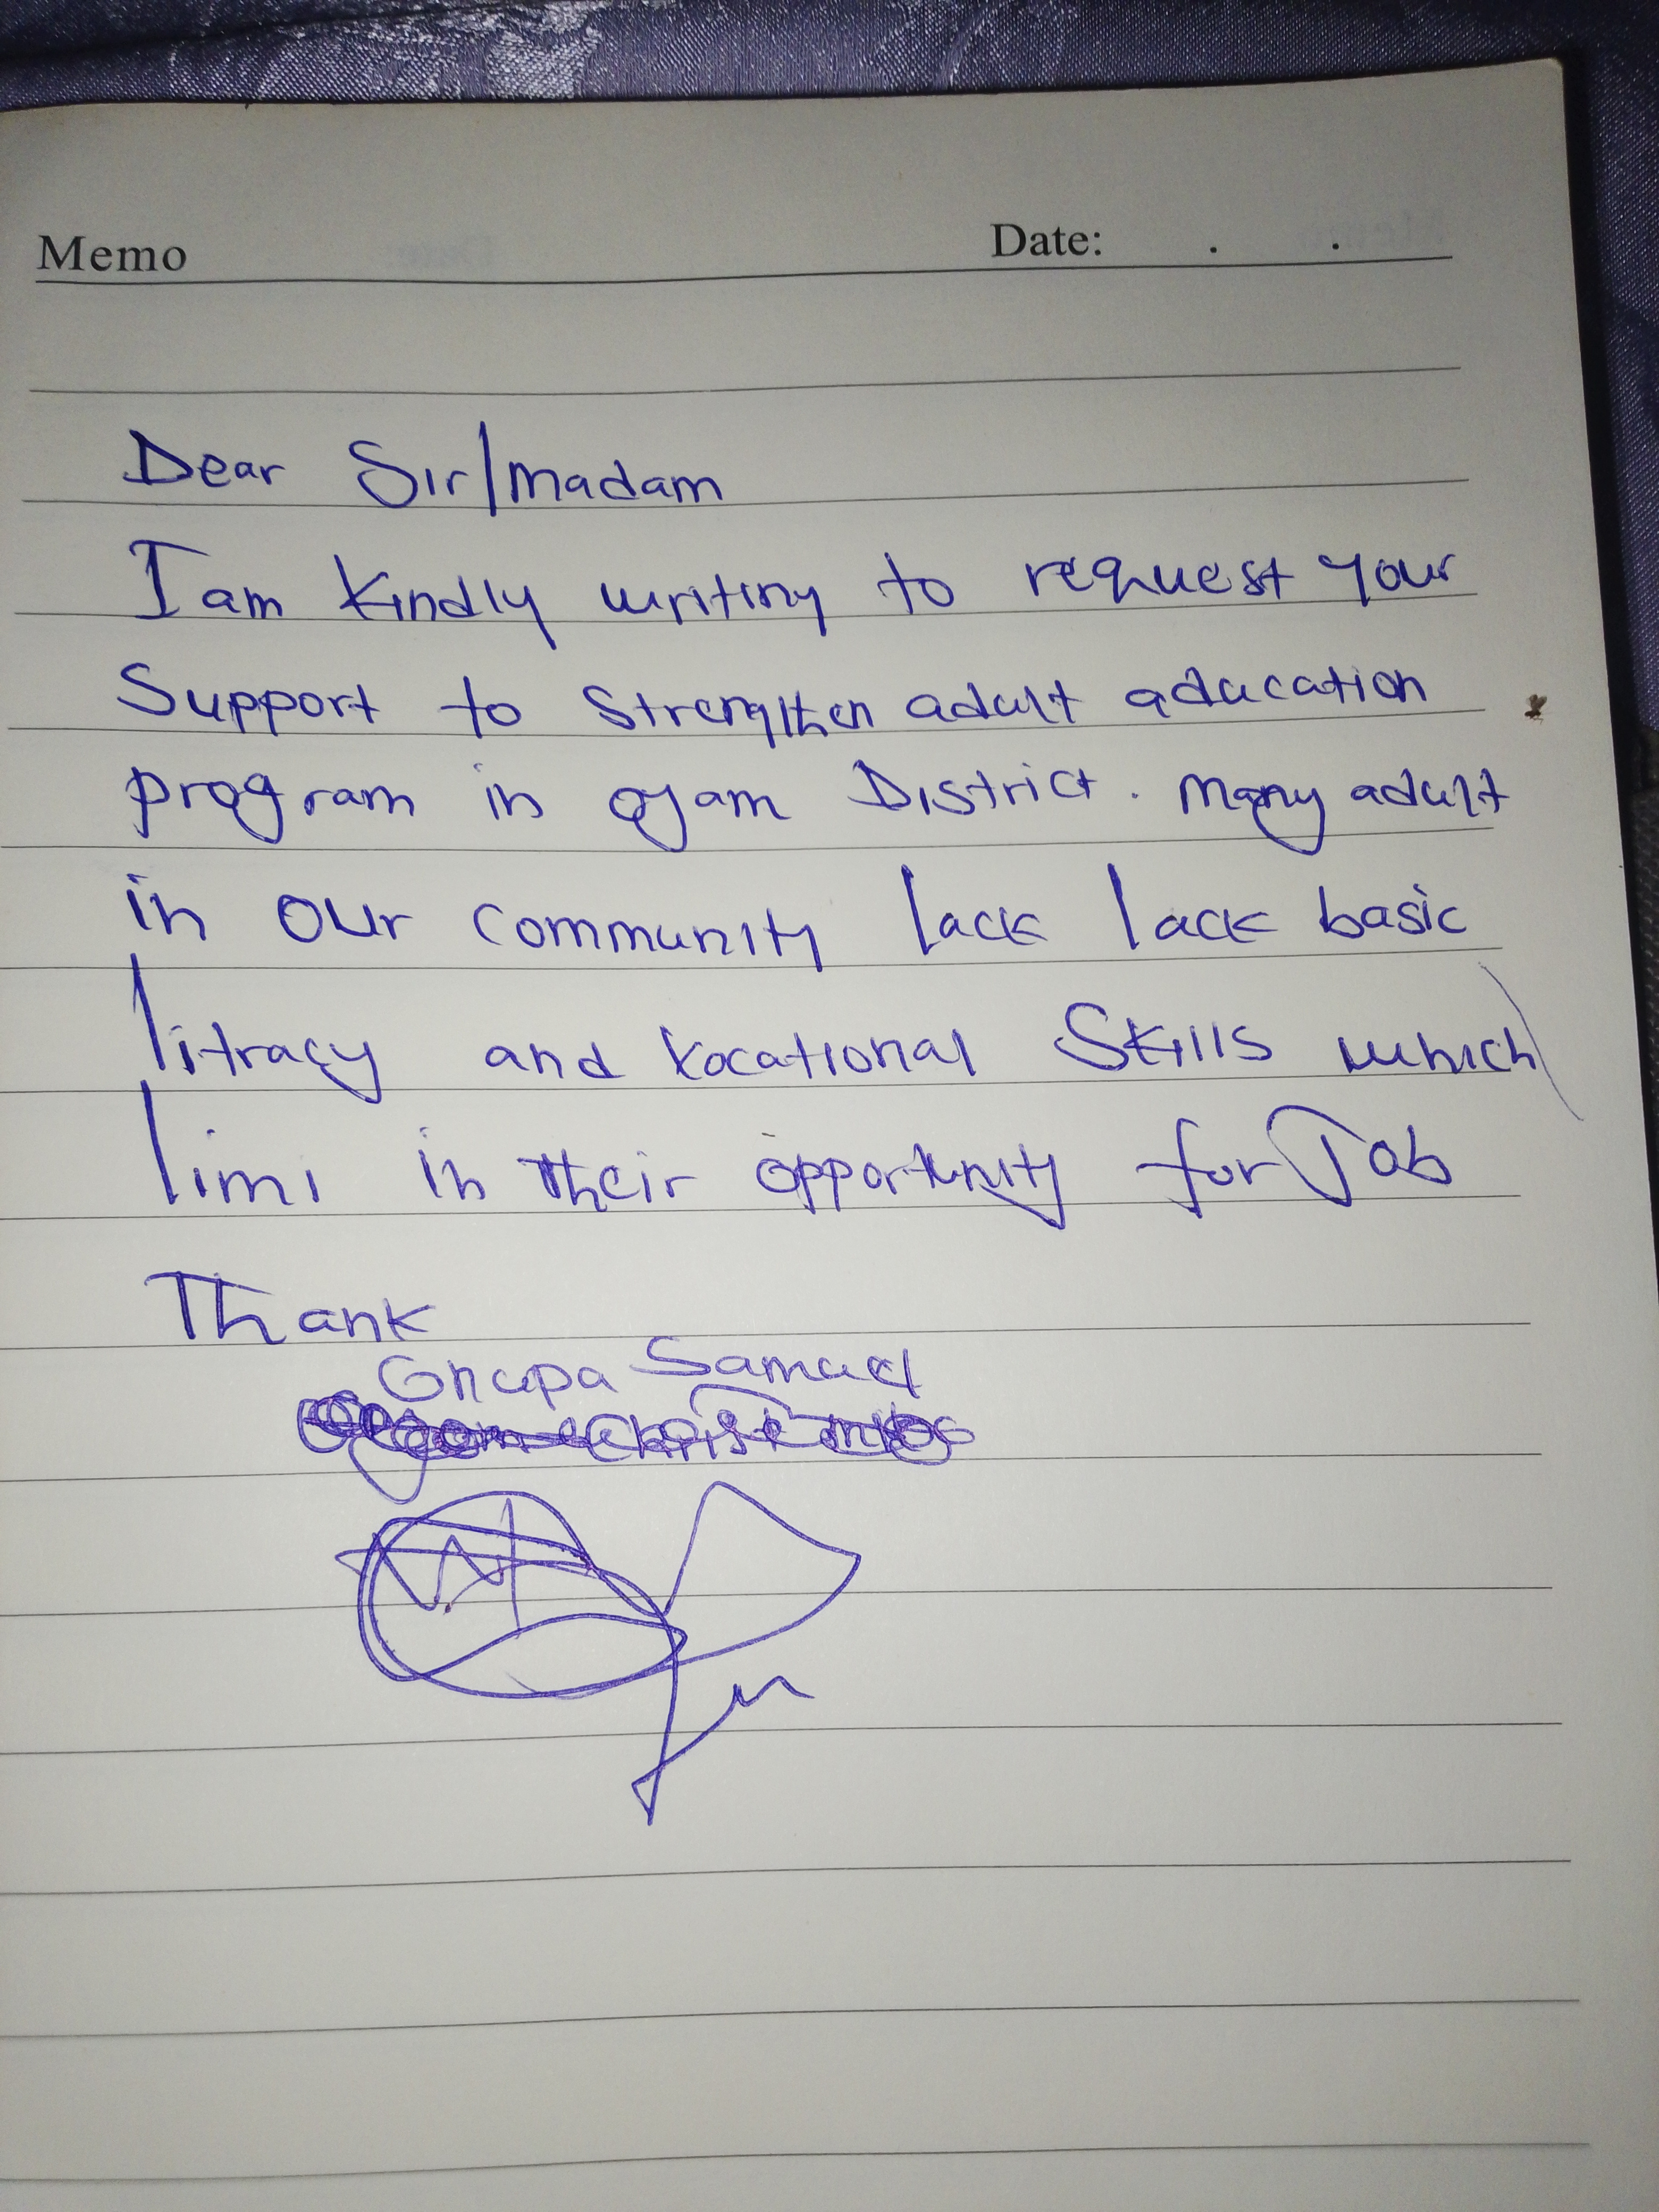 Memo Date: . .
Dear Sir/madam
I am kindly writing to request your
Support to strengthen adult aducation
program in oyam District. Many adult
in our community lack lack basic
litracy and kocational Skills which
limi in their opportunity for Job
Thank
Samuel